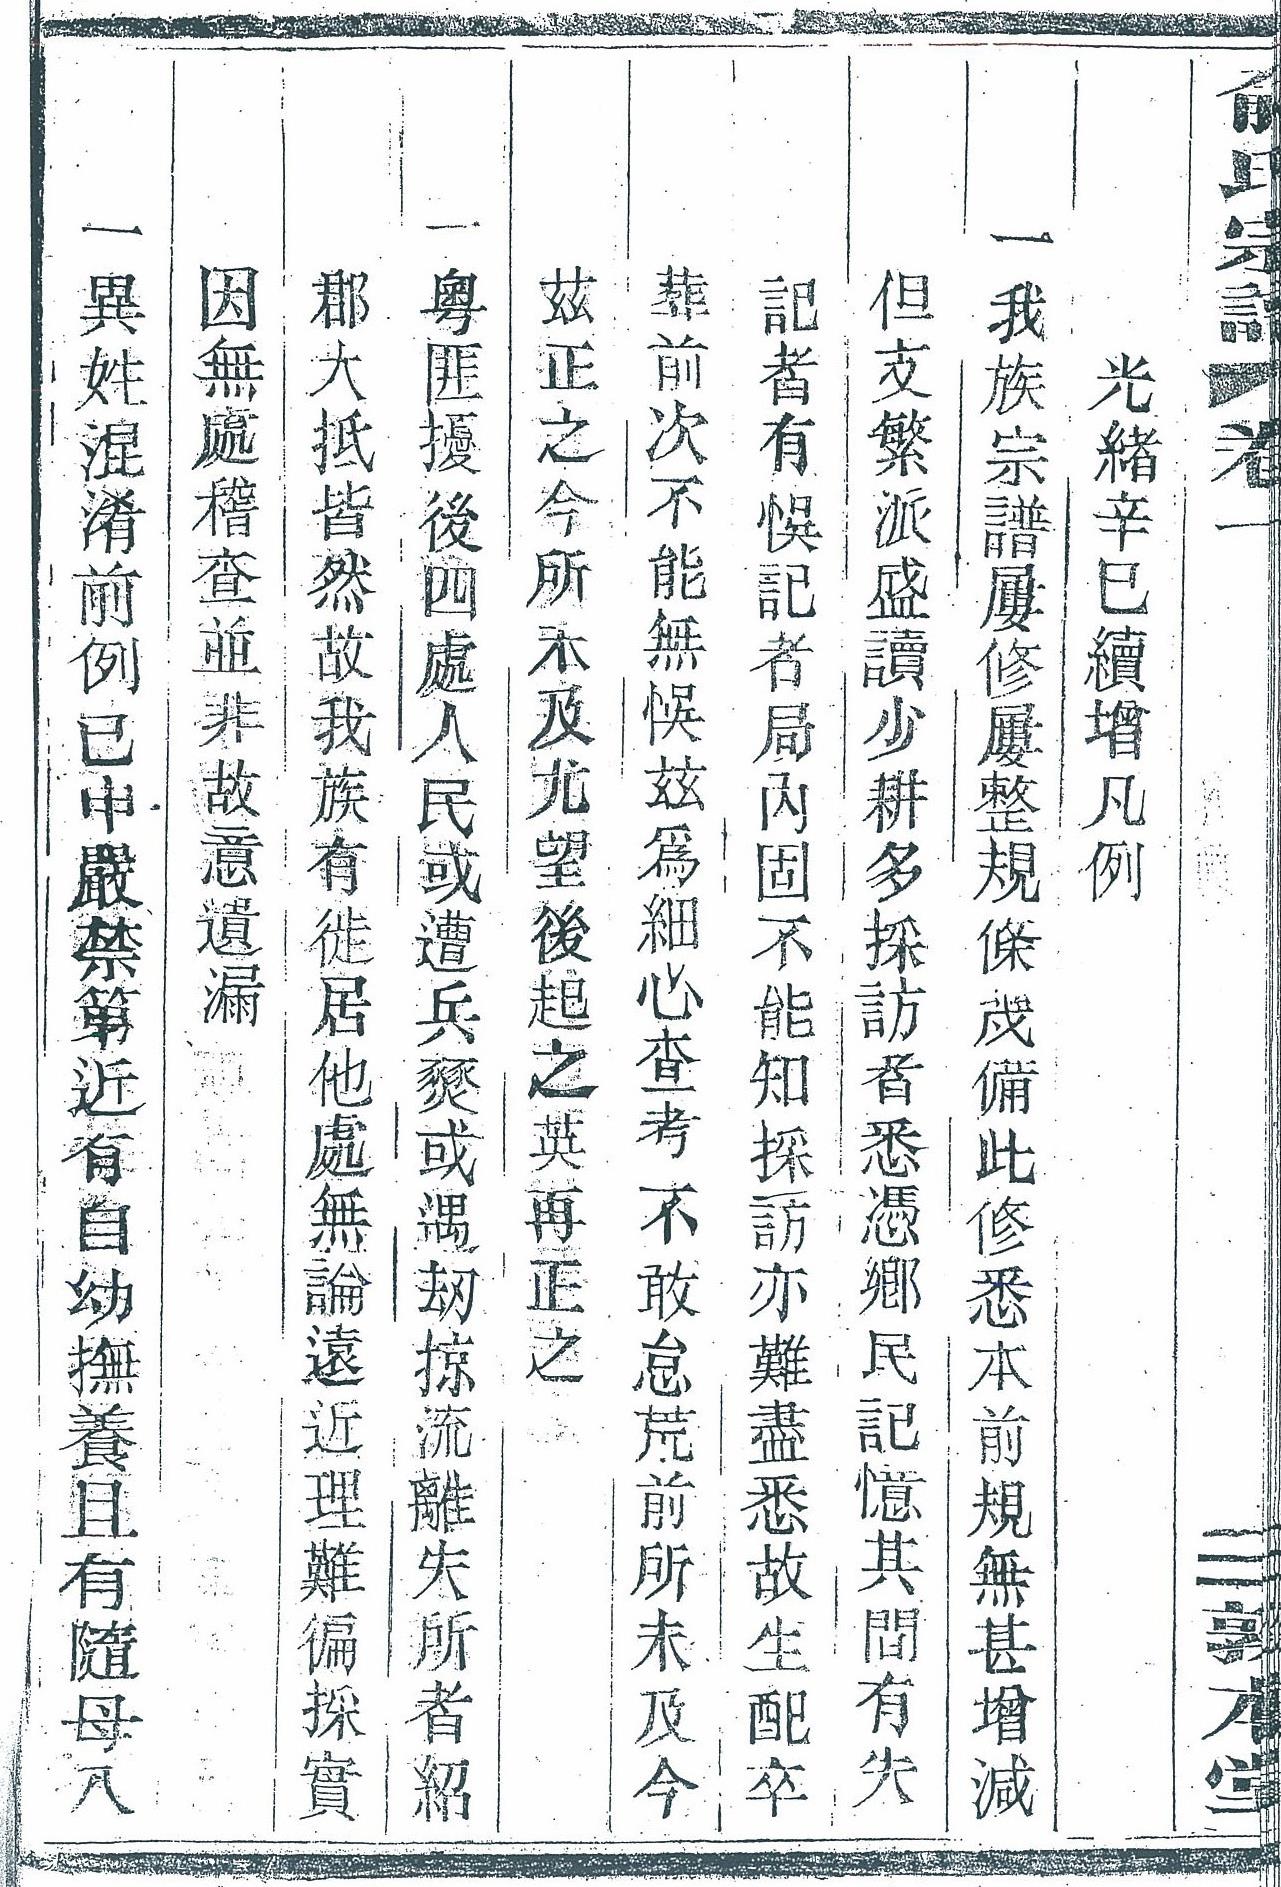 俞氏宗譜 卷一 三 敦本堂
光緒辛巳續增凡例
一我族宗譜屢修屢整規條茂備此修悉本前規無甚增減
但支繁派盛讀少耕多採訪者悉憑鄉民記憶其間有失
記者有悞記者局內固不能知採訪亦難盡悉故生配卒
葬前次不能無悞茲為細心查考不敢怠荒前所未及今
茲正之今所未及尤望後起之英再正之
一粵匪擾後四處人民或遭兵燹或遇刼掠流離失所者紹
郡大抵皆然故我族有徙居他處無論遠近理難徧採實
因無處稽查並非故意遺漏
一異姓混淆前例已申嚴禁第近有自幼撫養且有隨母入